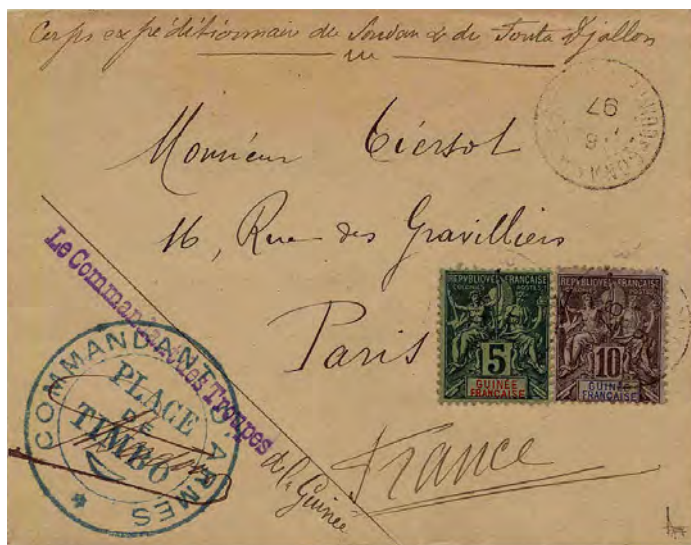 Corps expéditionnaire du Soudan & du Fouta Djallon
97
Monsieur Tiersot
16, Rue des Gravilliers
Paris
France
Le Commandant Des Troupes
de la Guinée
COMMANDANT D'ARMES
PLACE
DE
TIMBO
REPUBLIQUE FRANÇAISE
COLONIES POSTES
5
GUINÉE
FRANÇAISE
REPUBLIQUE FRANÇAISE
COLONIES POSTES
10
GUINÉE
FRANÇAISE